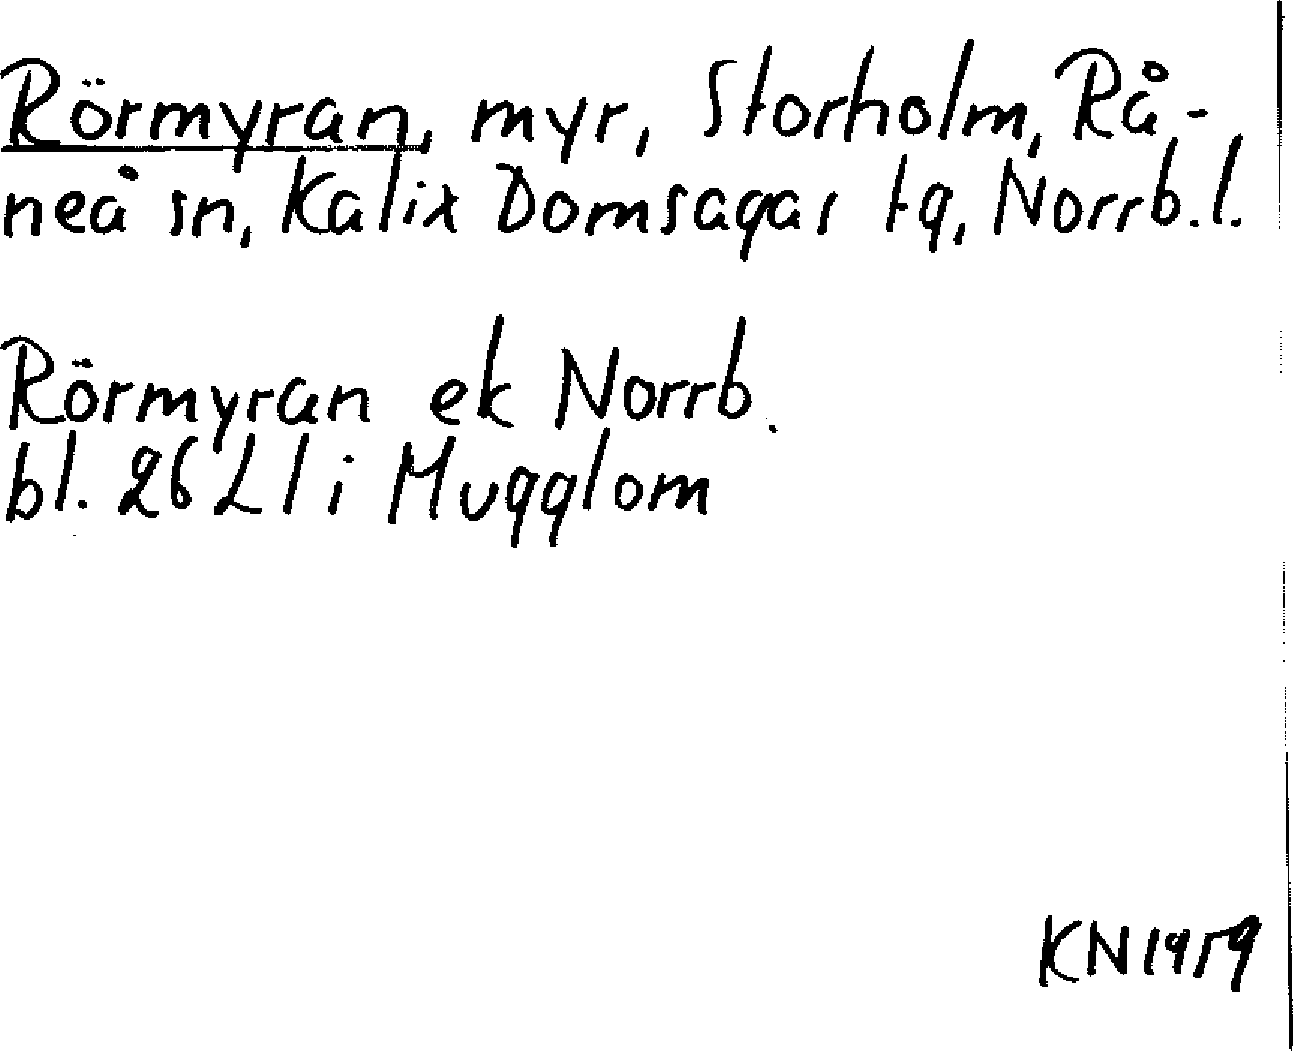 Rörmyran, myr, Storholm, Rå-
neå sn, Kalix Domsagas tg, Norrb.l.
Rörmyran ek Norrb.
bl. 26 L l i Mugglom
KN 1959